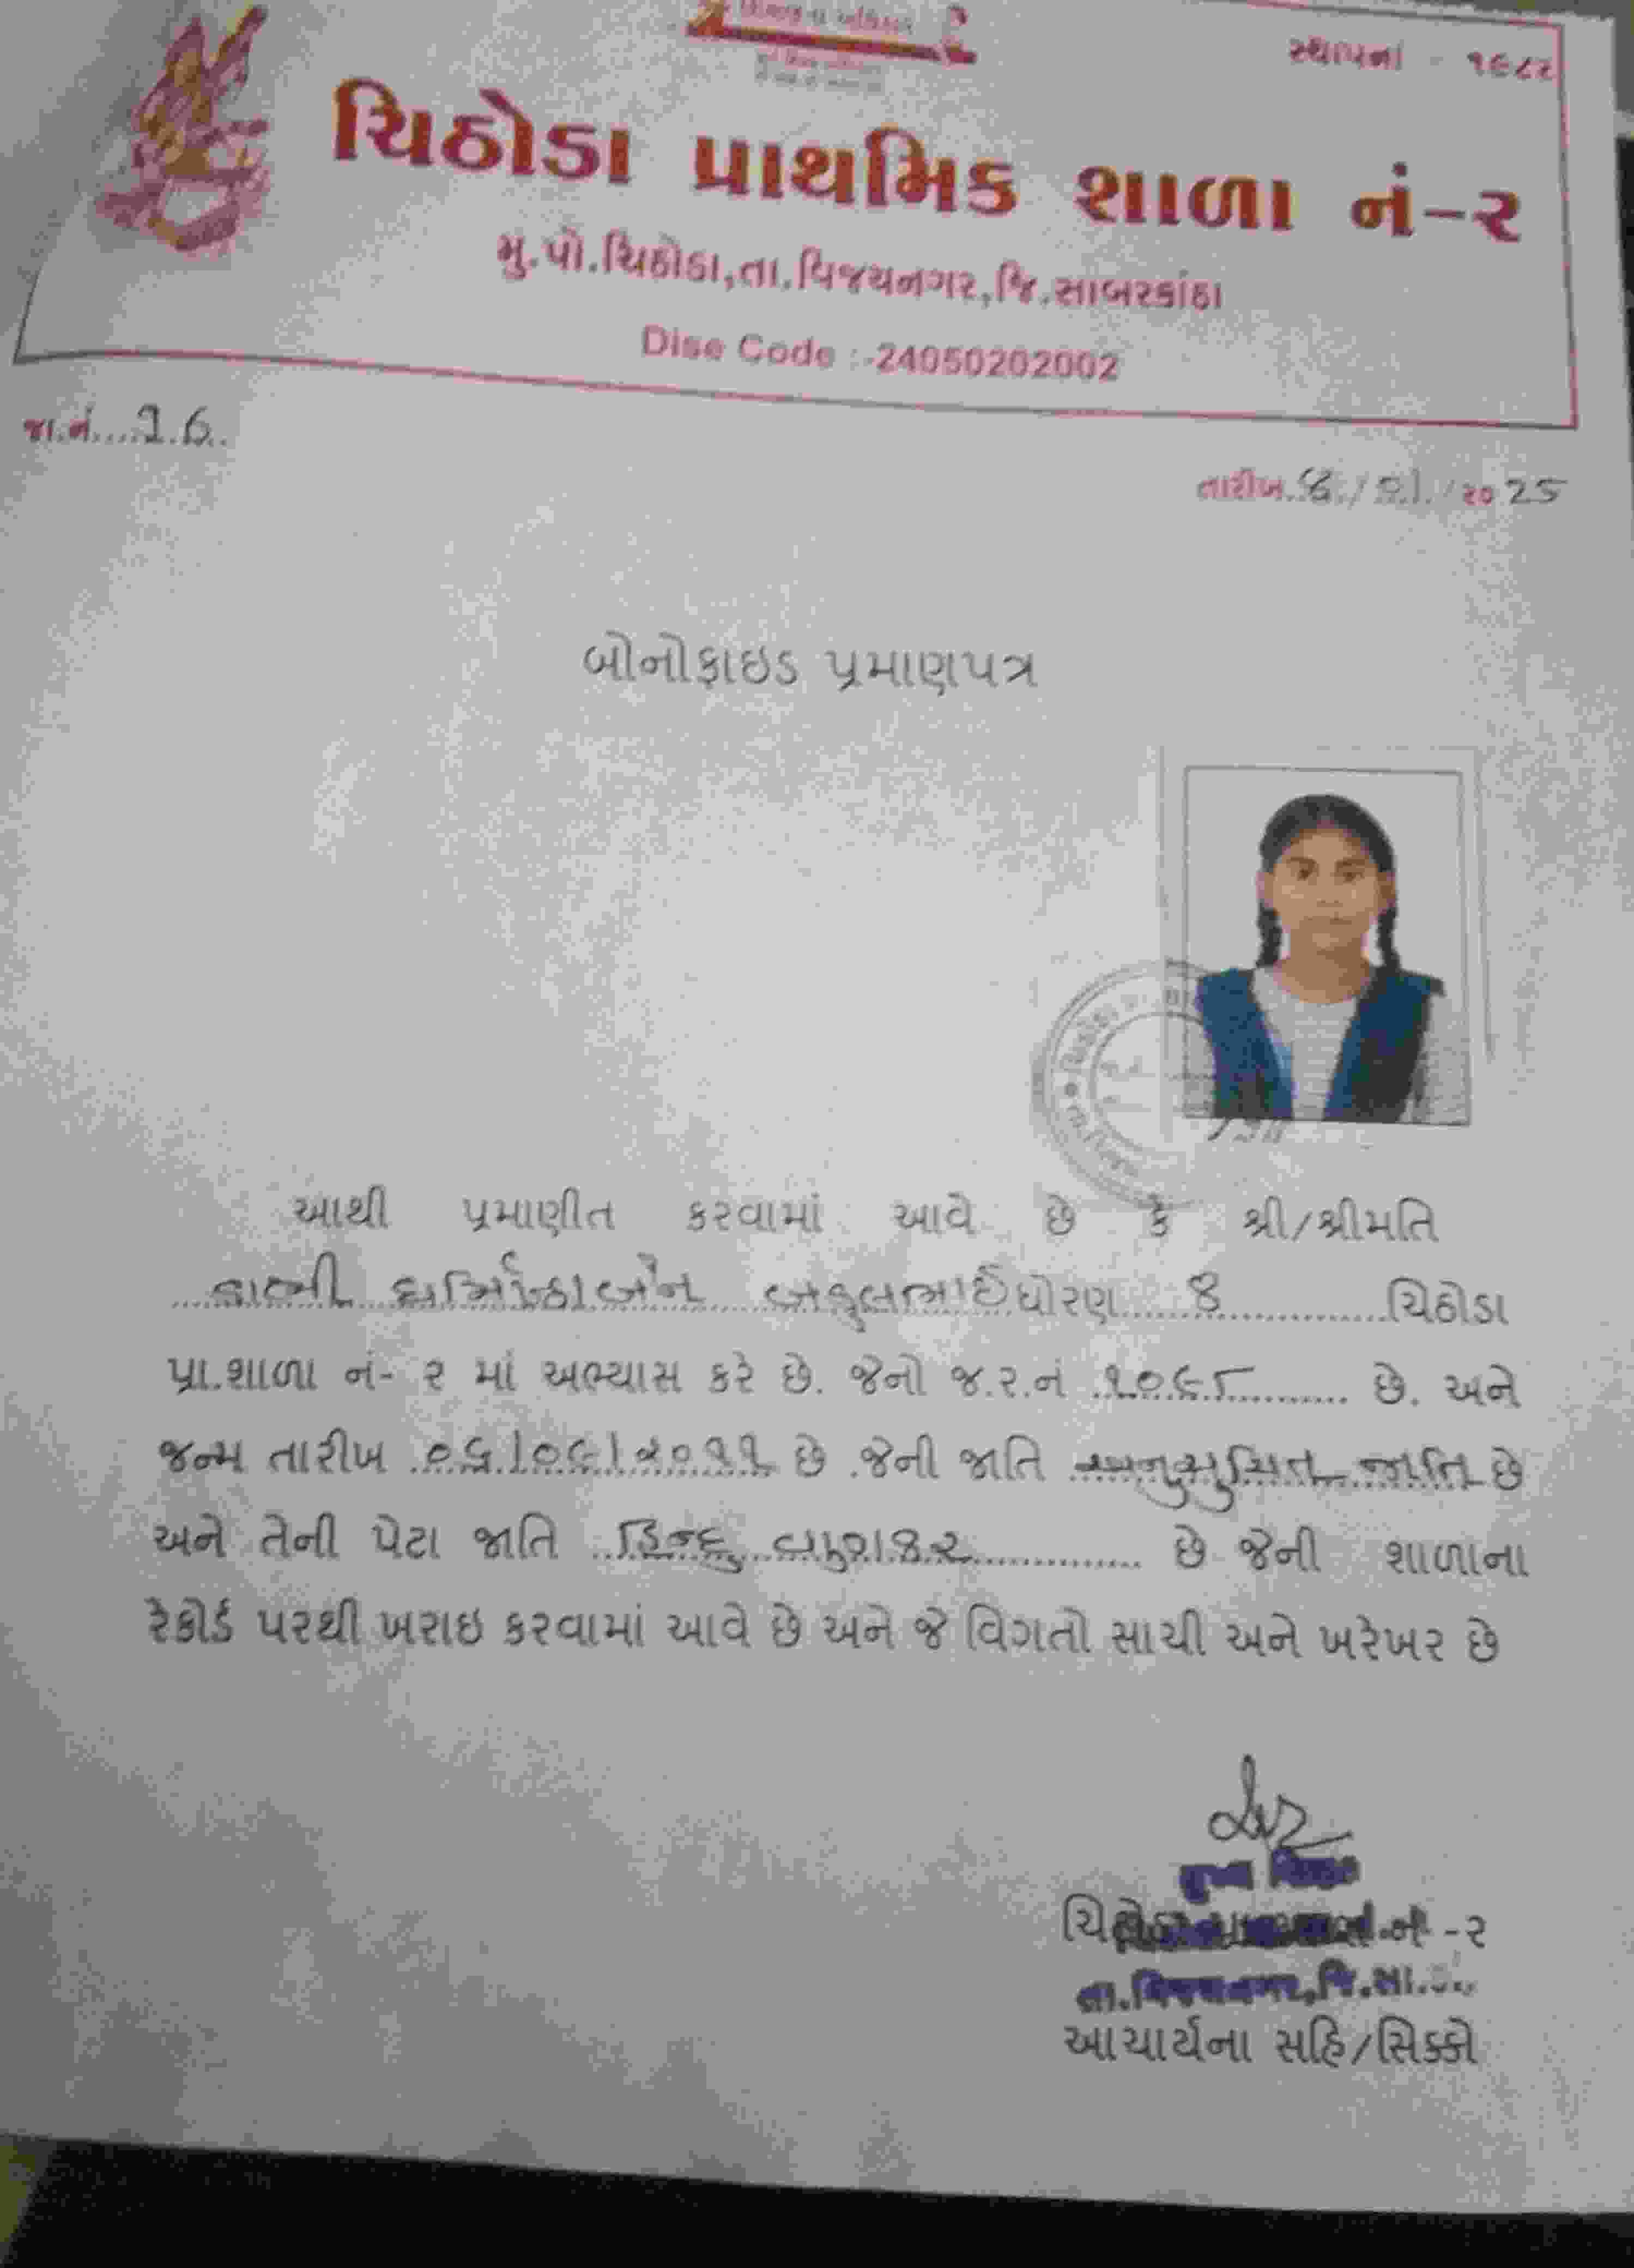 સ્થાપના - ૧૯૮૨
ચિઠોડા પ્રાથમિક શાળા નં-ર
મુ.પો.ચિઠોડા,તા.વિજયનગર,જિ.સાબરકાંઠા
Dise Code :-24050202002
જા.નં....16..
તારીખ. /01./૨૦25
બોનોફાઇડ પ્રમાણપત્ર
આથી પ્રમાણીત કરવામાં આવે છે કે શ્રી/શ્રીમતિ
બકુલભાઈ ધોરણ 8 ચિઠોડા
પ્રા.શાળા નં- ર માં અભ્યાસ કરે છે. જેનો જ.ર.નં ૧૦૯૮ છે. અને
જન્મ તારીખ ૦૬/૦૯/૨૦૧૧ છે .જેની જાતિ અનુસુચિત જાતિ છે
અને તેની પેટા જાતિ હિન્દુ વણકર છે જેની શાળાના
રેકોર્ડ પરથી ખરાઇ કરવામાં આવે છે અને જે વિગતો સાચી અને ખરેખર છે
નં -ર
તા.વિજયનગર,જિ.સા.કાં.
આચાર્યના સહિ/સિક્કો